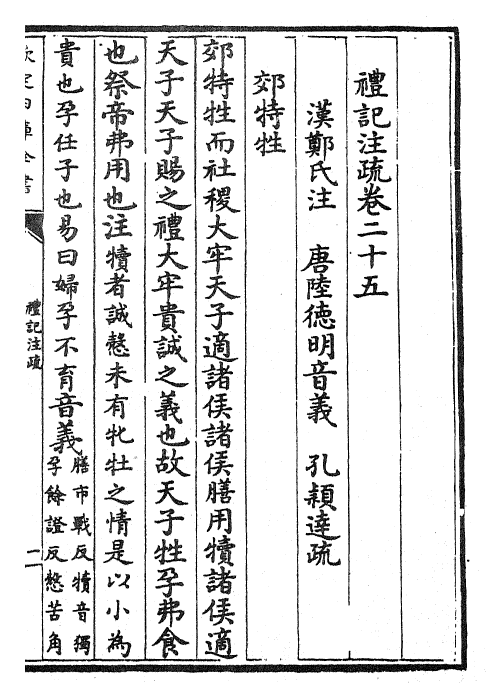 禮記注疏卷二十五
漢鄭氏注 唐陸德明音義 孔穎達疏
郊特牲
郊特牲而社稷大牢天子適諸侯諸侯膳用犢諸侯適
天子天子賜之禮大牢貴誠之義也故天子牲孕弗食
也祭帝弗用也注犢者誠慤未有牝牡之情是以小為
貴也孕任子也易曰婦孕不育音義膳市戰反犢音獨
孕餘證反慤苦角
禮記注疏
一